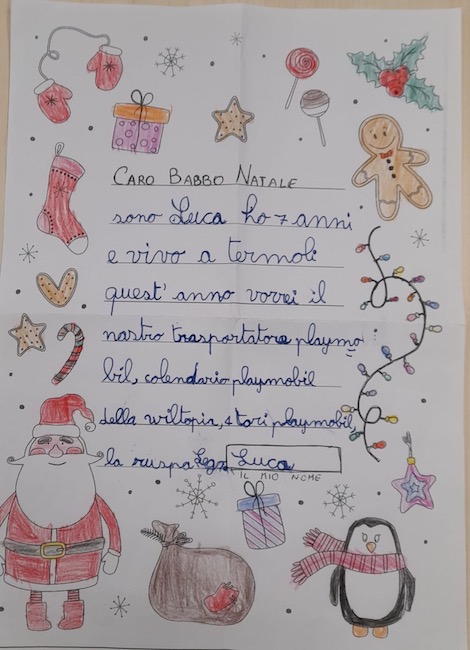 CARO BABBO NATALE
sono Luca ho 7 anni
e vivo a termoli
quest' anno vorrei il
nastro trasportatore playmo
bil, calendario playmobil
della wiltopia, 4 tori playmobil,
la ruspa Lego Luca
IL MIO NOME